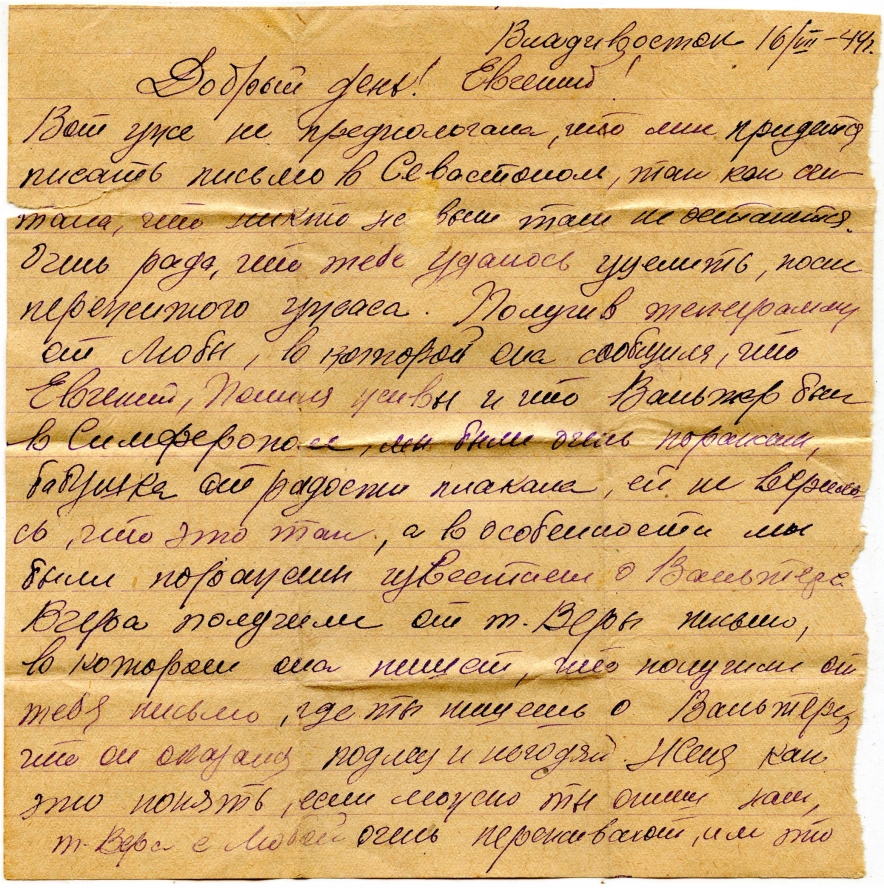 Владивосток 16/VII–44г.
Добрый день! Евгений!
Вот уже не предпологала, что мне придется
писать письмо в Севастополь, так как счи-
тала, что никто из вас там не останится.
Очень рада, что тебе удалось уцелить, после
пережитого ужаса. Получив телеграмму
от Любы, в которой она сообщила, что
Евгений, живы и что Вальтер был
в Симферополе, мы были очень поражены,
бабушка от радости плакала, ей не верило
сь, что это так, а в особенности мы
были поражены известием о Вальтере
Вчера получили от т. Веры письмо,
в котором она пишет, что получили от
тебя письмо, где ты пишешь о Вальтере,
что он оказался подлец и негодяй. Женя как
это понять, если можно ты опиши нам,
т. Вера с Любой очень переживают, им это